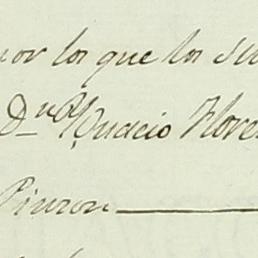 por los que los su
Dn Ygnacio Flore
Pinzon